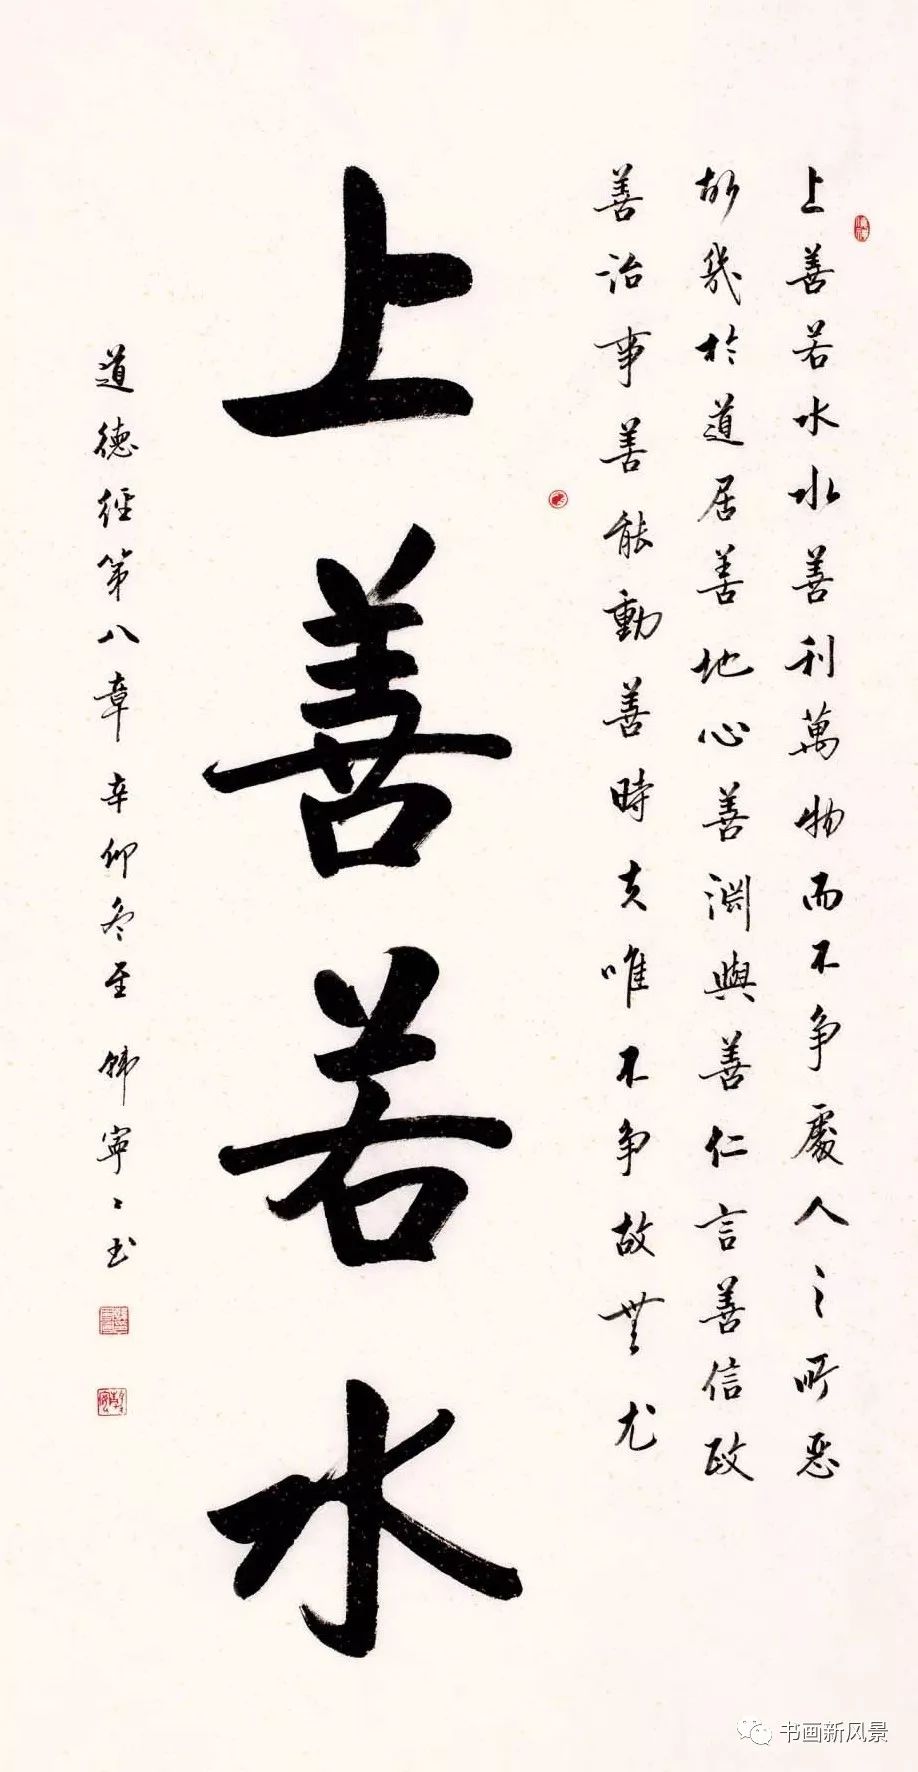 上善若水水善利萬物而不争處人之所惡
故幾於道居善地心善淵與善仁言善信政
善治事善能動善時夫唯不争故無尤
上善若水
道德經第八章 辛卯冬至 韩寧〻书
书画新风景